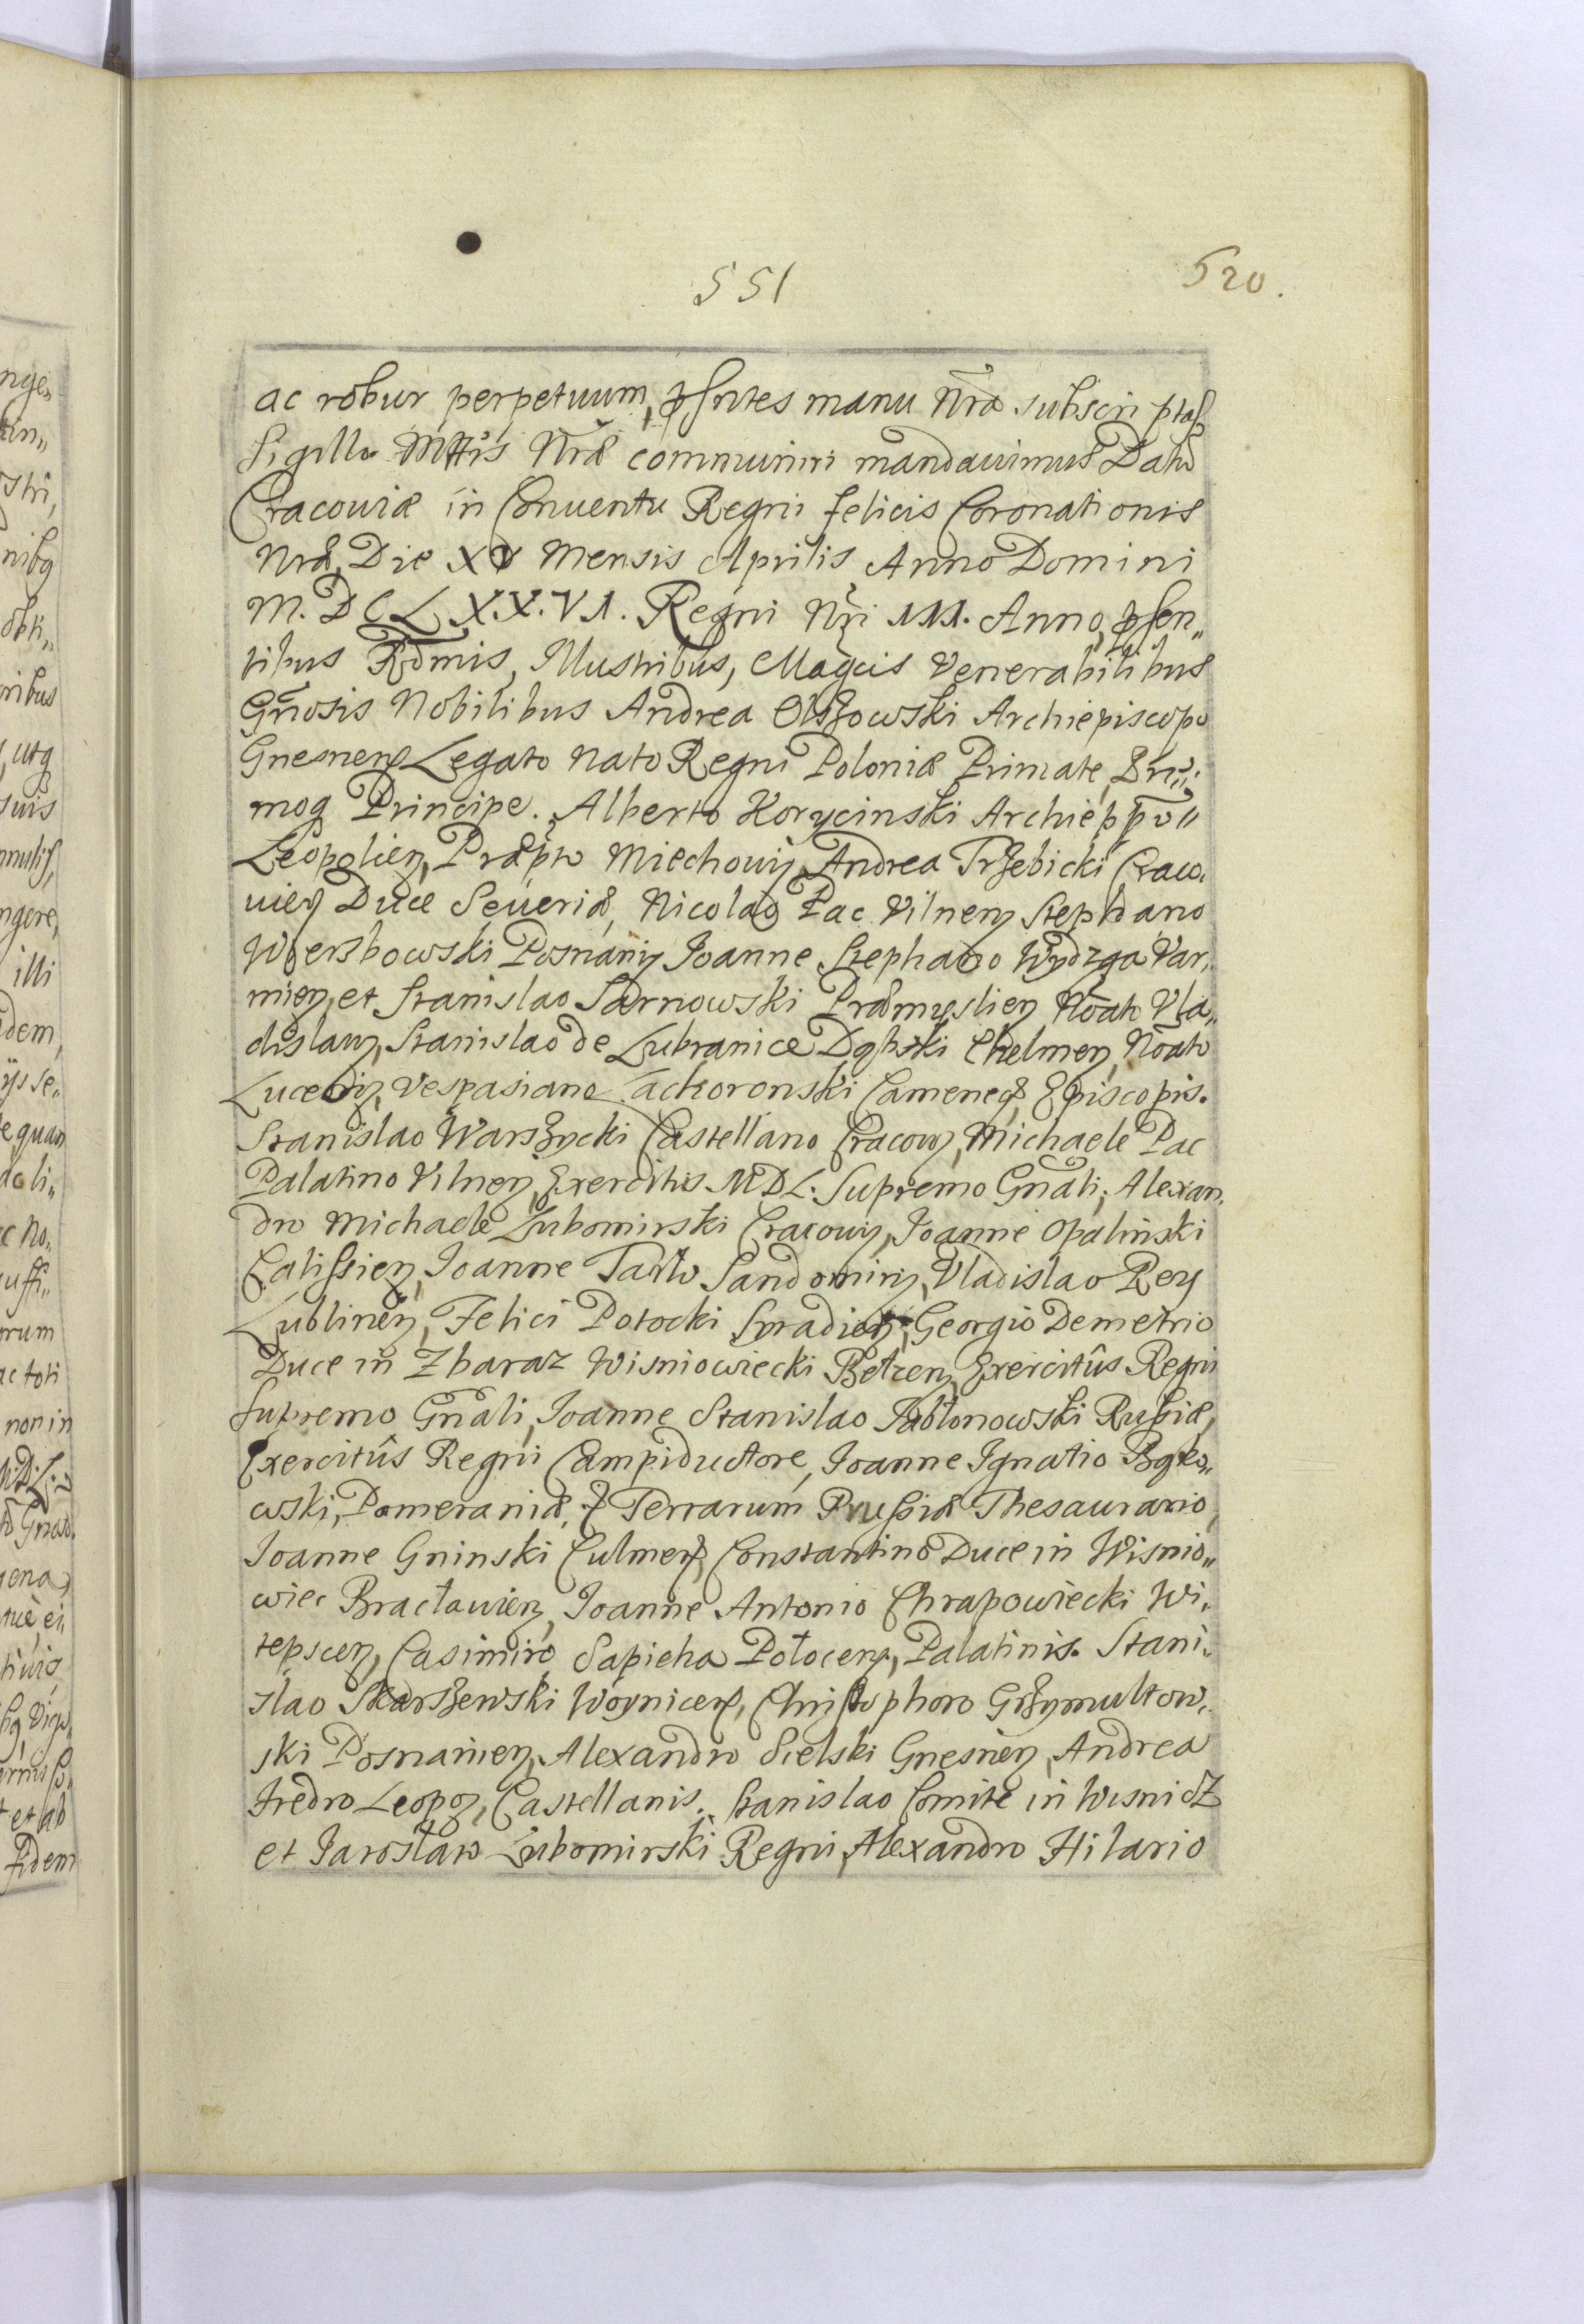 551
520.
ac robur perpetuum, pſntes manu Nr̃a subscriptas
Sigillo Mttis Nr̃æ communiri mandauimus Datũ
Cracouiæ in Conuentu Regni felicis Coronationis
Nræ, Die XV Mensis Aprilis Anno Domini
M. D C L X.X.VI. Regni Nr̃i III. Anno, pſen„
tibus Rd̃mis, Illustribus, Magcis Venerabilibus
Gñosis Nobilibus Andrea Olszowski Archiepiscopo
Gnesnen Legato Nato Regni Poloniæ Primate,
moq Principe. Alberto Korycinski Archieppo„
Leopolien, Præpto Miechouien, Andrea Trzebicki Craco„
uien Duce Seueriæ, Nicolao Pac Vilnen Stephano
Wierzbowski Posnanien Joanne Stephano Wydzga Var„
mien, et Stanislao Sarnowski Præmyslien Noãto Vla„
dislauien, Stanislao de Lubranice Dąbski Chelmen, Noãto
Luceorien, Vespasiano Lackoronski Camenecen, Episcopis.
Stanislao Warszycki Castellano Cracouien, Michaele Pac
Palatino Vilnen, Exercitus M D L. Supremo Gnãli, Alexan„
dro Michaele Lubomirski Cracouien, Joanne Opalinski
Calissien, Joanne Tarło Sandomirien, Vladislao Rey
Lublinen, Felici Potocki Syradien, Georgio Demetrio
Duce in Zbaraz Wisniowiecki Belzen, Exercitûs Regni
Supremo Gnãli, Joanne Stanislao Jabłonowski Russiæ,
Exercitûs Regni Campiductore, Joanne Ignatio Bąko„
wski, Pomeraniæ, & Terrarum Prussiæ Thesaurario,
Joanne Gninski Culmen, Constantino Duce in Wisnio„
wiec Bracłauien, Joanne Antonio Chrapowiecki Wi„
tepscen, Casimiro Sapieha Połocen, Palatinis. Stani„
slao Skarszewski Woynicen, Christophoro Grzymultow„
ski Posnanien, Alexandro Sielski Gnesnen, Andrea
Fredro Leopoen, Castellanis. Stanislao Comite in Wisnicz
et Jarosław Lubomirski Regni, Alexandro Hilario